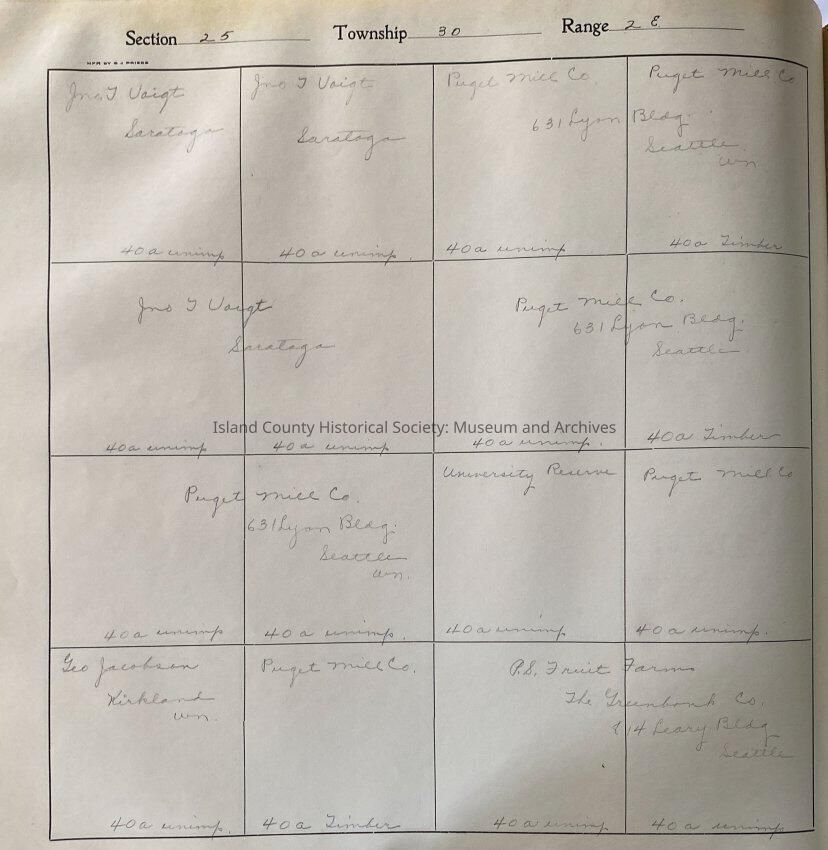 Section 25 Township 30 Range 2 E.
MFR BY
Jno. T Voigt
Saratoga
40 a unimp
Jno T Voigt
Saratoga
40 a unimp.
Puget Mill Co
40 a unimp
Puget Mill Co
631 Lyon Bldg.
Seattle
Wn
40 a Timber
Jno T Voigt
Saratoga
40 a unimp
40 a unimp
Puget Mill Co.
631 Lyon Bldg.
Seattle
40 a unimp.
40 a Timber
Island County Historical Society: Museum and Archives
Puget Mill Co.
631 Lyon Bldg.
Seattle
Wn.
40 a unimp
40 a unimp.
University Reserve
40 a unimp
Puget Mill Co
40 a unimp.
Geo Jacobson
Kirkland
Wn.
40 a unimp.
Puget Mill Co.
40 a Timber
P.S. Fruit Farms
The Greenbank Co.
814 Leary Bldg
Seattle
40 a unimp
40 a unimp